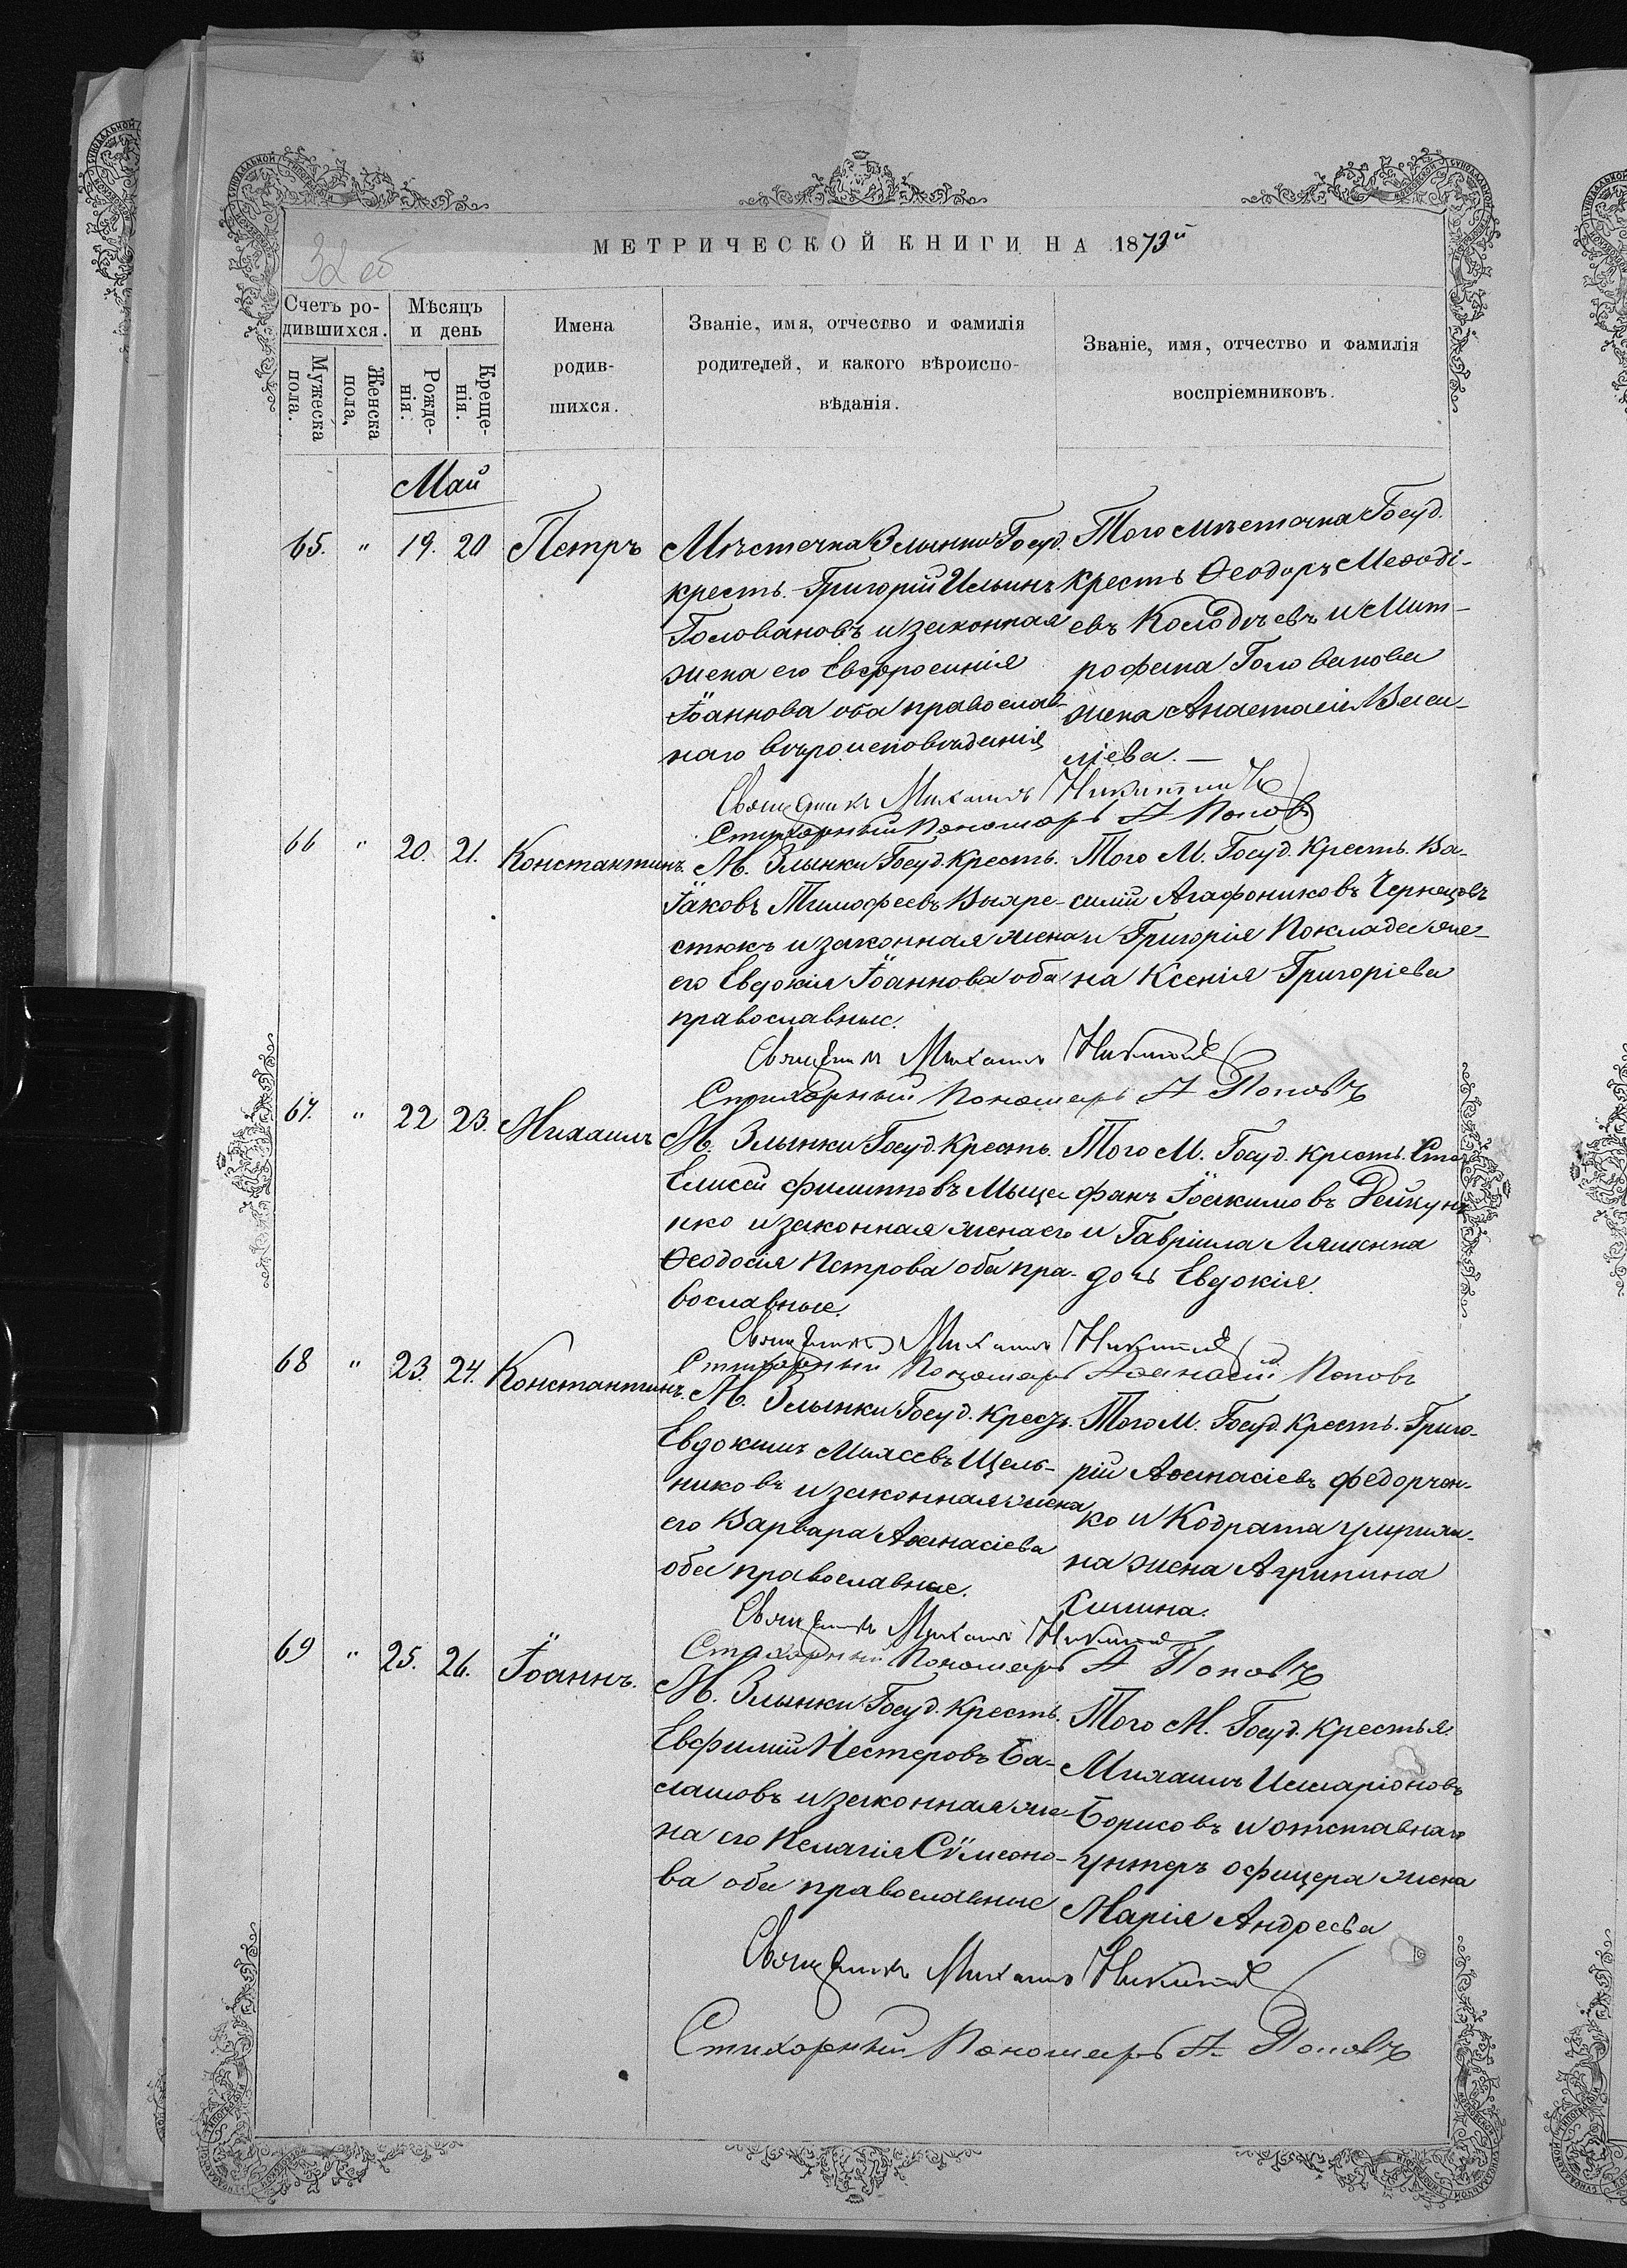 32 об
МЕТРИЧЕСКОЙ КНИГИ НА 1873й
Счетъ ро-
дившихся.
Мужеска
пола.
Женска
пола.
Мѣсяцъ
и день
Рожде-
нія.
Креще-
нія.
Имена
родив-
шихся.
Званіе, имя, отчество и фамилія
родителей, и какого вѣроиспо-
вѣданія.
Званіе, имя, отчество и фамилія
воспріемниковъ.
Май
65. " 19. 20 Петръ
Мѣстечка Злынки Госуд.
кресть. Григорій Ильинъ
Головановъ и законная
жена его Евфросинія
Іоаннова оба православ-
наго вѣроисповѣданія
Того мѣстечка Госуд.
кресть Ѳеодоръ Меѳоді-
евъ Колодѣевъ и Мит-
рофана Голованова
жена Анастасія Васи-
ліева. —
Священникъ Михаилъ Никитинъ
Стихарный Пономарь А Поповъ
66 " 20. 21. Константинъ.
М. Злынки Госуд. кресть.
Іаковъ Тимофеевъ Выхре-
стюкъ и законная жена
его Евдокія Іоаннова оба
православные.
Того М. Госуд. Кресть. Ва-
силій Агафониковъ Чернецовъ
и Григорія Поклада же-
на Ксенія Григоріева
Священникъ Михаилъ Никитинъ
Стихарный Пономарь А Поповъ
67. " 22 23. Михаилъ
М. Злынки Госуд. Кресть.
Елисей Филипповъ Мыце
нко и законная жена его
Ѳеодосія Петрова оба пра-
вославные.
Того М. Госуд. кресть. Сте-
фанъ Іоакимовъ Дейкунъ
и Гавріила Ляшенка
дочь Евдокія.
Священникъ Михаилъ Никитинъ
Стихарный Пономарь Аѳанасій Поповъ
68 " 23. 24. Константинъ.
М. Злынки Госуд. кресть.
Евдокимъ Моисеевъ Щель-
никовъ и законная жена
его Варвара Аѳанасіева
оба православные.
Того М. Госуд. Кресть. Григо-
рій Аѳанасіевъ Федорчен-
ко и Кодрата
на жена Агрипина
Священникъ Михаилъ Никитинъ
Стихарный Пономарь А Поповъ
69 " 25. 26. Іоаннъ.
М. Злынки Госуд. Кресть.
Евфимій Нестеровъ Ба-
лашовъ и законная же-
на его Пелагія Сѵмеоно-
ва оба православные
Того М. Госуд. Крестья.
Михаилъ Иларіоновъ
Борисовъ и отставнаго
унтеръ офицера жена
Марія Андреева
Священникъ Михаилъ Никитинъ
Стихарный Пономарь А Поповъ